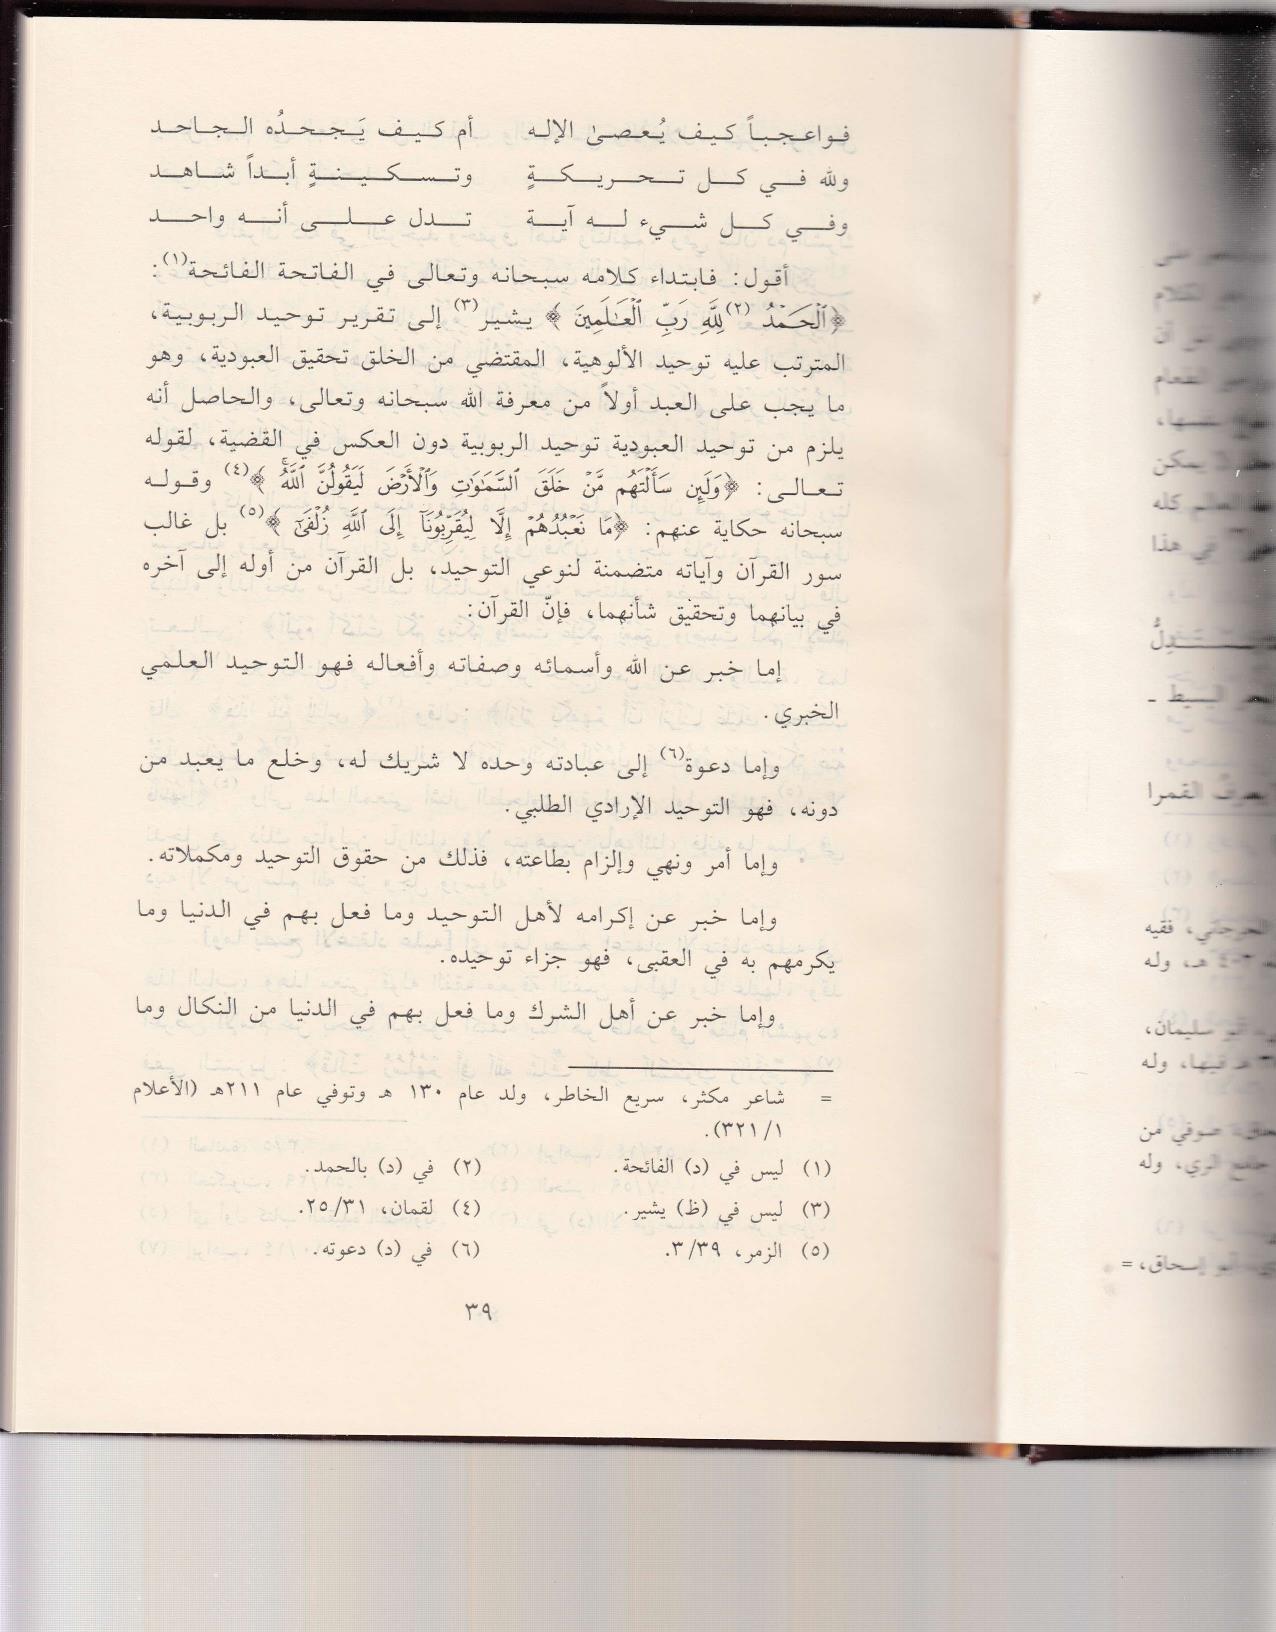 فواعجباً كيف يُعصىٰ الإله أم كيف يَجحدُه الجاحد
ولله في كل تحريكةٍ وتسكينةٍ أبداً شاهد
وفي كل شيء له آية تدل على أنه واحد
أقول: فابتداء كلامه سبحانه وتعالى في الفاتحة الفائحة(١):
﴿ٱلْحَمْدُ (٢)لِلَّهِ رَبِّ ٱلْعَٰلَمِينَ﴾ يشير(٣) إلى تقرير توحيد الربوبية،
المترتب عليه توحيد الألوهية، المقتضي من الخلق تحقيق العبودية، وهو
ما يجب على العبد أولاً من معرفة الله سبحانه وتعالى، والحاصل أنه
يلزم من توحيد العبودية توحيد الربوبية دون العكس في القضية، لقوله
تعالى: ﴿وَلَئِن سَأَلْتَهُم مَّنْ خَلَقَ ٱلسَّمَٰوَٰتِ وَٱلْأَرْضَ لَيَقُولُنَّ ٱللَّهُۚ﴾(٤) وقوله
سبحانه حكاية عنهم: ﴿مَا نَعْبُدُهُمْ إِلَّا لِيُقَرِّبُونَآ إِلَى ٱللَّهِ زُلْفَىٰٓ﴾(٥) بل غالب
سور القرآن وآياته متضمنة لنوعي التوحيد، بل القرآن من أوله إلى آخره
في بيانهما وتحقيق شأنهما، فإنّ القرآن:
إما خبر عن الله وأسمائه وصفاته وأفعاله فهو التوحيد العلمي
الخبري.
وإما دعوة(٦) إلى عبادته وحده لا شريك له، وخلع ما يعبد من
دونه، فهو التوحيد الإرادي الطلبي.
وإما أمر ونهي وإلزام بطاعته، فذلك من حقوق التوحيد ومكملاته.
وإما خبر عن إكرامه لأهل التوحيد وما فعل بهم في الدنيا وما
يكرمهم به في العقبى، فهو جزاء توحيده.
وإما خبر عن أهل الشرك وما فعل بهم في الدنيا من النكال وما
= شاعر مكثر، سريع الخاطر، ولد عام ١٣٠ هـ وتوفي عام ٢١١هـ (الأعلام
١/ ٣٢١).
(١) ليس في (د) الفائحة. (٢) في (د) بالحمد.
(٣) ليس في (ظ) يشير. (٤) لقمان، ٣١/ ٢٥.
(٥) الزمر، ٣٩/ ٣. (٦) في (د) دعوته.
٣٩
الكلام
يمكن
العالم كله
في هذا
البسيط ـ
القمرا
الجرجاني، فقيه
هـ، وله
أبو سليمان،
فيها، وله
صوفي من
الري، وله
أبو إسحاق، =